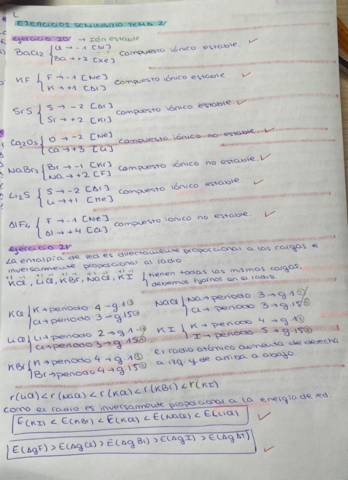 EJERCICIOS SEMINARIO TEMA 2
ejercicio 20 → Ión estable
BaCl2 { Cl → -1 [Ar]
Ba → +2 [Xe] compuesto iónico estable.
KF { F → -1 [Ne]
K → +1 [Ar] compuesto iónico estable
SrS { S → -2 [Ar]
Sr → +2 [Kr] compuesto iónico estable.
O → -2 [Ne]
compuesto iónico no estable.
NaBr2 { Br → -1 [Kr]
Na → +2 [F] compuesto iónico no estable.
Li2S { S → -2 [Ar]
Li → +1 [He] compuesto iónico estable
AlF4 { F → -1 [Ne]
Al → +4 compuesto iónico no estable.
ejercicio 21
La entalpía de red es directamente proporcional a las cargas e
inversamente proporcional al radio
KCl, LiCl, KBr, NaCl, KI } tienen todas las mismas cargas,
debemos fijarnos en el radio.
KCl { K → periodo 4 - g 1
Cl → periodo 3 → g 15
NaCl { Na → periodo 3 → g 1
Cl → periodo 3 → g 15
LiCl { Li → periodo 2 → g 1
Cl → periodo 3 → g 15
KI { K → periodo 4 → g 1
I → periodo 5 → g 15
KBr { K → periodo 4 → g 1
Br → periodo 4 → g 15
El radio atómico aumenta de derecha
a izq. y de arriba a abajo
r(LiCl) < r(NaCl) < r(KCl) < r(KBr) < r(KI)
como el radio es inversamente proporcional a la energía de red
E(KI) < E(KBr) < E(KCl) < E(NaCl) < E(LiCl)
E(AgF) > E(AgCl) > E(AgBr) > E(AgI) > E(AgAt)